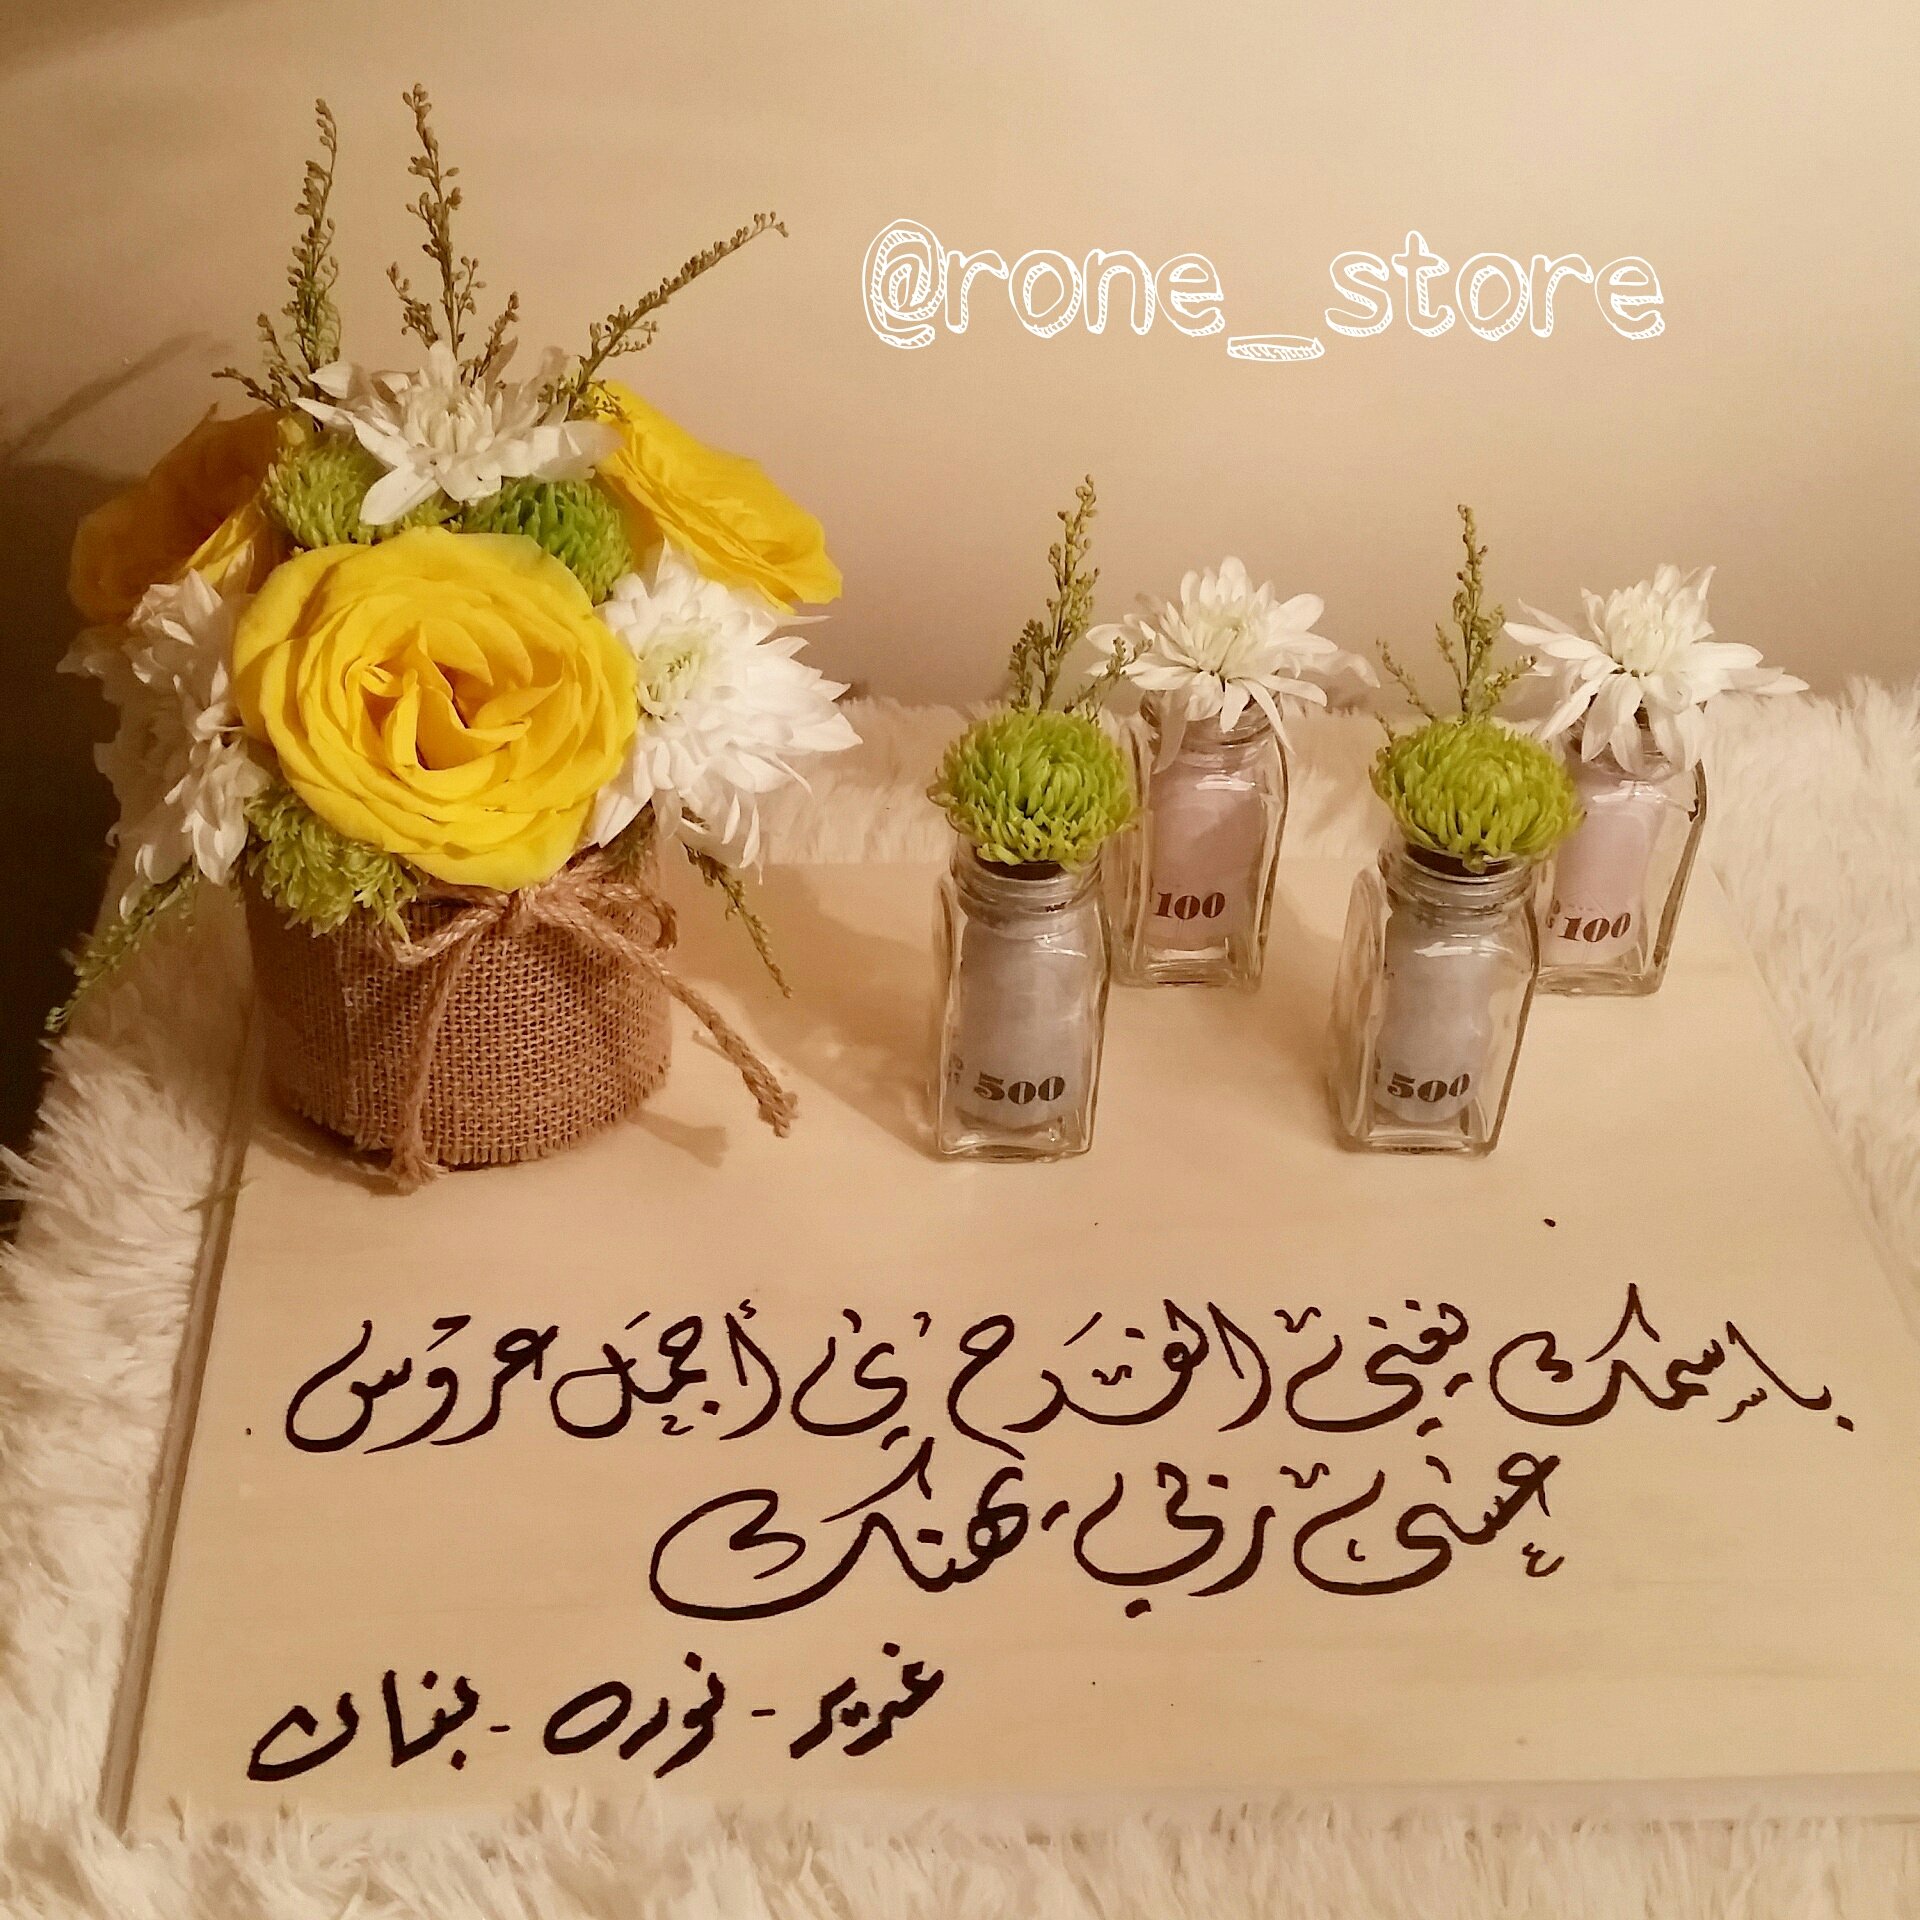 @rone_store
100
100
500
500
باسمك يغني الفرح يا أجمل عروس
عسى ربي يهنيك
غدير - نوره - بنان